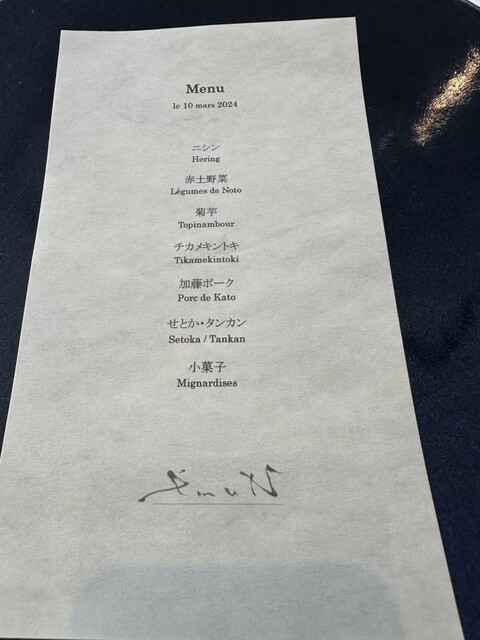 Menu
le 10 mars 2024
ニシン
Hering
赤土野菜
Légumes de Noto
菊芋
Topinambour
チカメキントキ
Tikamekintoki
加藤ポーク
Porc de Kato
せとか・タンカン
Setoka / Tankan
小菓子
Mignardises